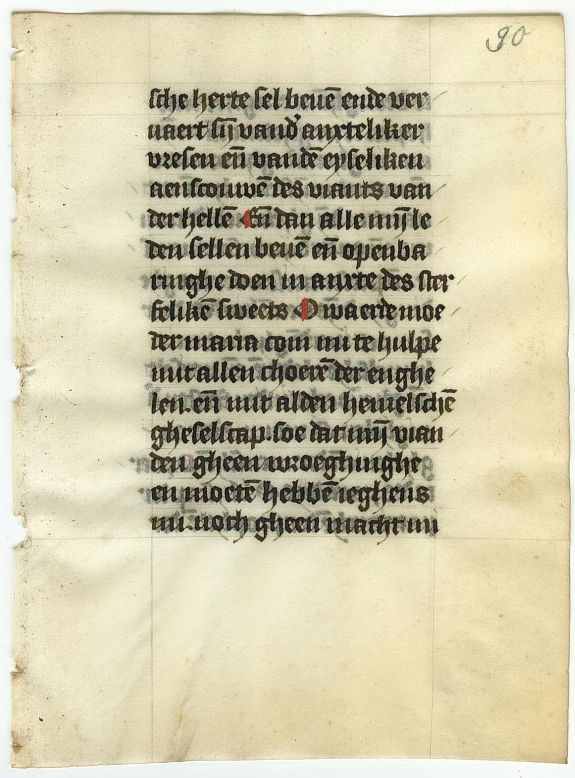 90
sche herte sel beuē ende ver
uaert sij vand' anxteliker
vresen eñ vandē eyseliken
aenscouwē des viants van
der hellē Eñ dan alle mijn le
den sellen beuē eñ openba
ringhe doen in anxte des ster
felikē sweets O waerde moe
der maria com mi te hulpe
mit allen choerē der enghe
len. eñ mit alden hemelschē
gheselscap. soe dat mijn vian
den gheen wroeghinghe
en moetē hebbē ieghens
mi. noch gheen macht mi